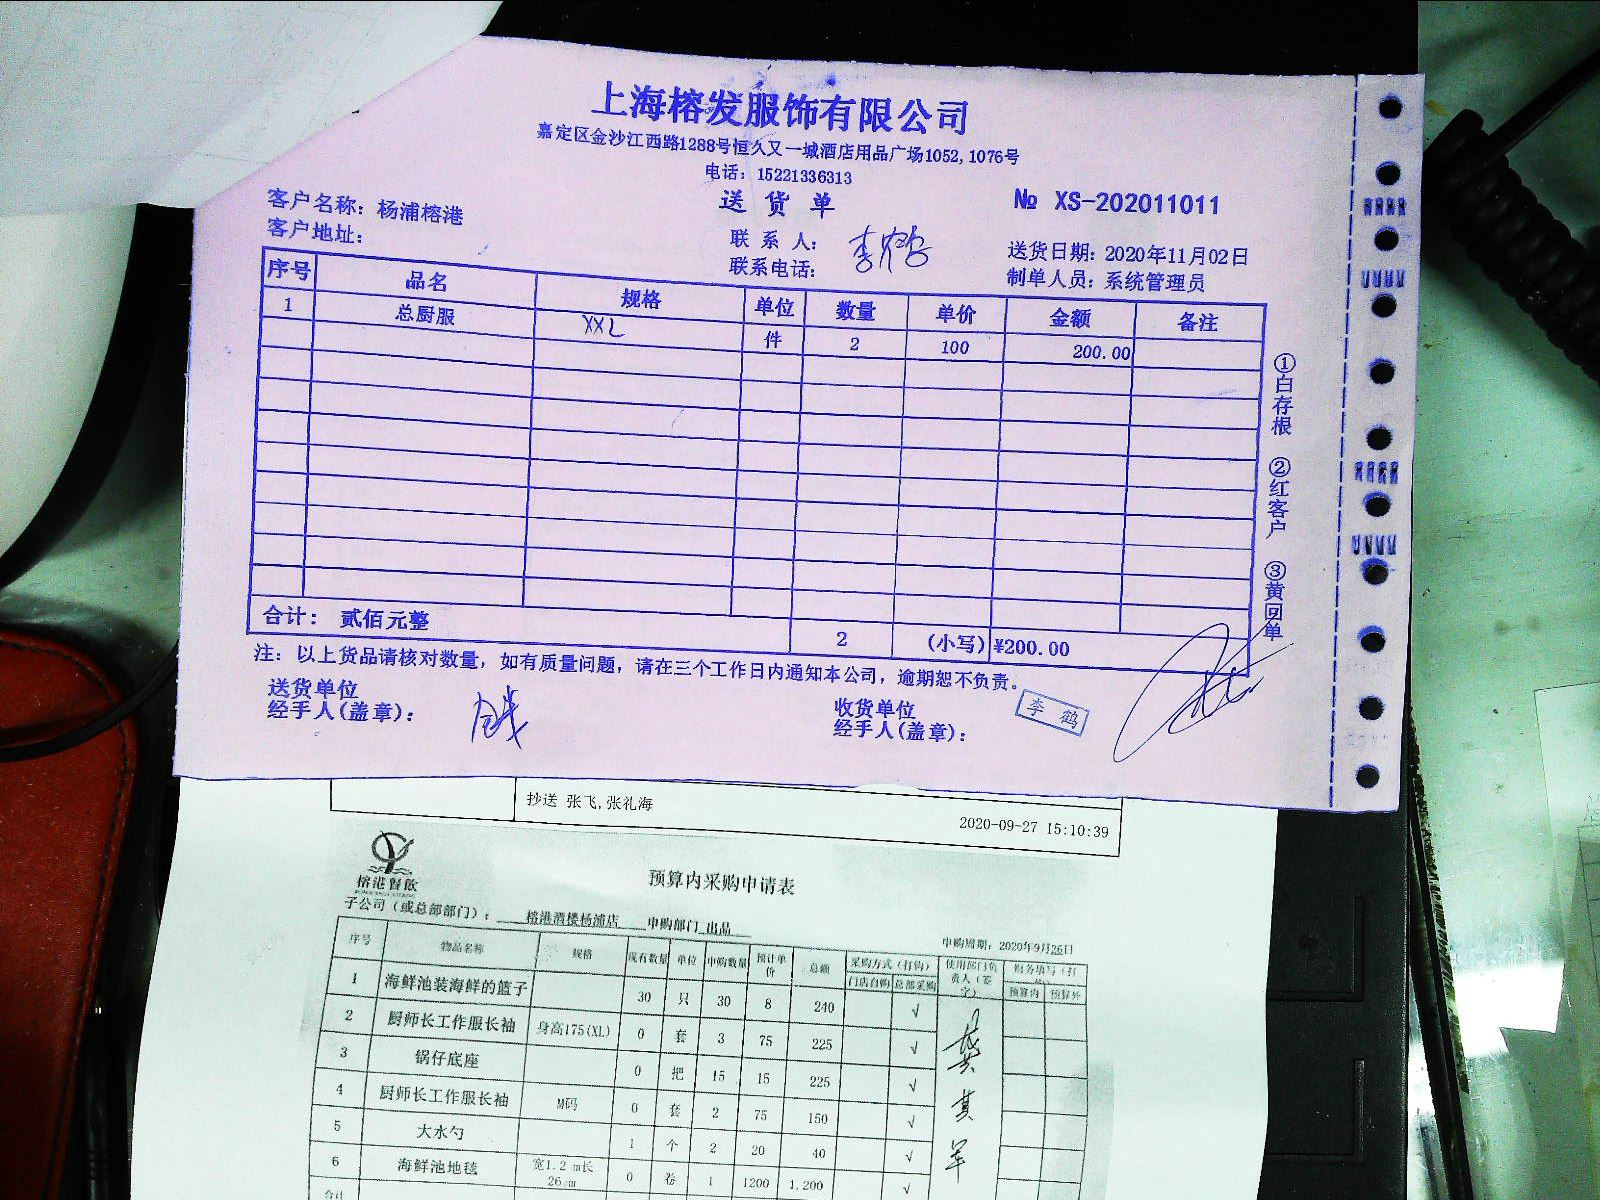 上海榕发服饰有限公司
嘉定区金沙江西路1288号恒久又一城酒店用品广场1052,1076号
电话：15221336313
送货单
№ XS-202011011
客户名称：杨浦榕港
客户地址：
联系人：
联系电话：
送货日期：2020年11月02日
制单人员：系统管理员
序号 品名 规格 单位 数量 单价 金额 备注
1 总厨服 XXL 件 2 100 200.00
合计：贰佰元整 2 (小写) ¥200.00
注：以上货品请核对数量，如有质量问题，请在三个工作日内通知本公司，逾期恕不负责。
送货单位
经手人(盖章)：
收货单位
经手人(盖章)：
李鹤
①白存根 ②红客户 ③黄回单
抄送 张飞,张礼海
2020-09-27 15:10:39
榕港餐飲
预算内采购申请表
子公司（或总部部门）：榕港酒楼杨浦店 申购部门 出品
申购周期：2020年9月26日
序号 物品名称 规格 现有数量 单位 申购数量 预计单价 总额 采购方式（打钩） 使用部门负责人（签字） 财务填写（打
门店自购 总部采购 预算内 预算外
1 海鲜池装海鲜的篮子 30 只 30 8 240 √
2 厨师长工作服长袖 身高175(XL) 0 套 3 75 225 √
3 锅仔底座 0 把 15 15 225 √
4 厨师长工作服长袖 M码 0 套 2 75 150 √
5 大水勺 1 个 2 20 40 √
6 海鲜池地毯 宽1.2m长26m 0 卷 1 1200 1,200 √
合计